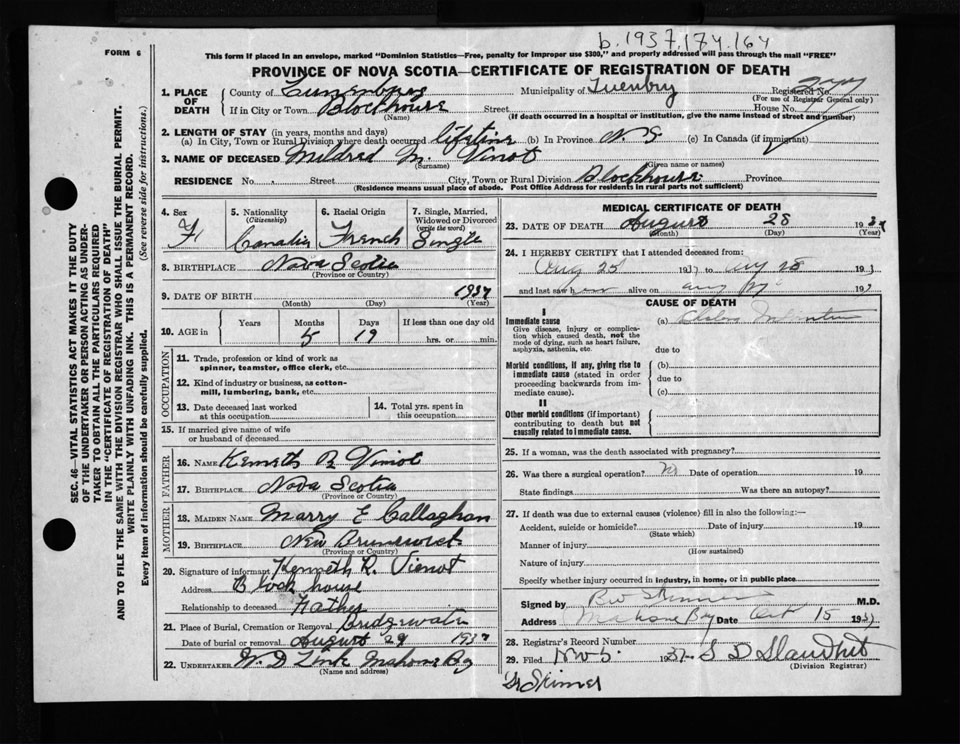 b. 1937.174.164
FORM 6
This form if placed in an envelope, marked "Dominion Statistics—Free, penalty for improper use $300," and properly addressed will pass through the mail "FREE"
PROVINCE OF NOVA SCOTIA—CERTIFICATE OF REGISTRATION OF DEATH
SEC. 46—VITAL STATISTICS ACT MAKES IT THE DUTY
OF THE UNDERTAKER OR PERSON ACTING AS UNDER-
TAKER TO OBTAIN ALL THE PARTICULARS REQUIRED
IN THE "CERTIFICATE OF REGISTRATION OF DEATH"
AND TO FILE THE SAME WITH THE DIVISION REGISTRAR WHO SHALL ISSUE THE BURIAL PERMIT.
WRITE PLAINLY WITH UNFADING INK. THIS IS A PERMANENT RECORD.
Every item of information should be carefully supplied. (See reverse side for instructions.)
1. PLACE OF DEATH County of Lunenburg Municipality of Registered No.
(For use of Registrar General only)
If in City or Town Blockhouse Street House No.
(Name) (If death occurred in a hospital or institution, give the name instead of street and number)
2. LENGTH OF STAY (in years, months and days)
(a) In City, Town or Rural Division where death occurred lifetime (b) In Province N.S (c) In Canada (if immigrant)
3. NAME OF DECEASED Mildred M. Vinot
(Surname) (Given name or names)
RESIDENCE No. Street City, Town or Rural Division Blockhouse Province
(Residence means usual place of abode. Post Office Address for residents in rural parts not sufficient)
4. Sex 5. Nationality (Citizenship) 6. Racial Origin 7. Single, Married, Widowed or Divorced (write the word)
F French Single
8. BIRTHPLACE Nova Scotia
(Province or Country)
9. DATE OF BIRTH 1937
(Month) (Day) (Year)
10. AGE in Years Months Days If less than one day old
5 19 hrs. or min.
OCCUPATION
11. Trade, profession or kind of work as
spinner, teamster, office clerk, etc.
12. Kind of industry or business, as cotton-
mill, lumbering, bank, etc.
13. Date deceased last worked
at this occupation
14. Total yrs. spent in
this occupation
15. If married give name of wife
or husband of deceased
FATHER
16. Name Kenneth R Viniot
17. Birthplace Nova Scotia
(Province or Country)
MOTHER
18. Maiden Name Marry E Callaghan
19. Birthplace New Brunswick
(Province or Country)
20. Signature of informant Kenneth R. Vienot
Address Block house
Relationship to deceased Father
21. Place of Burial, Cremation or Removal Bridgewater
Date of burial or removal August 29 1937
22. UNDERTAKER W. D Zink Mahone Bay
(Name and address)
MEDICAL CERTIFICATE OF DEATH
23. DATE OF DEATH August 28 1937
(Month) (Day) (Year)
24. I HEREBY CERTIFY that I attended deceased from:
Aug 25 1937 to Aug 28 193
and last saw her alive on 193
CAUSE OF DEATH
I
Immediate cause
Give disease, injury or complica-
tion which caused death, not the
mode of dying, such as heart failure,
asphyxia, asthenia, etc.
(a) Cholera Infantum
due to
Morbid conditions, if any, giving rise to
immediate cause (stated in order
proceeding backwards from im-
mediate cause).
(b)
due to
(c)
II
Other morbid conditions (if important)
contributing to death but not
causally related to immediate cause.
25. If a woman, was the death associated with pregnancy?
26. Was there a surgical operation? No Date of operation 193
State findings Was there an autopsy?
27. If death was due to external causes (violence) fill in also the following:—
Accident, suicide or homicide? Date of injury 193
(State which)
Manner of injury
(How sustained)
Nature of injury
Specify whether injury occurred in industry, in home, or in public place
Signed by Skinner M.D.
Address Mahone Bay Date Oct 15 1937
28. Registrar's Record Number
29. Filed Nov 5. 1937
(Division Registrar)
Dr Skinner